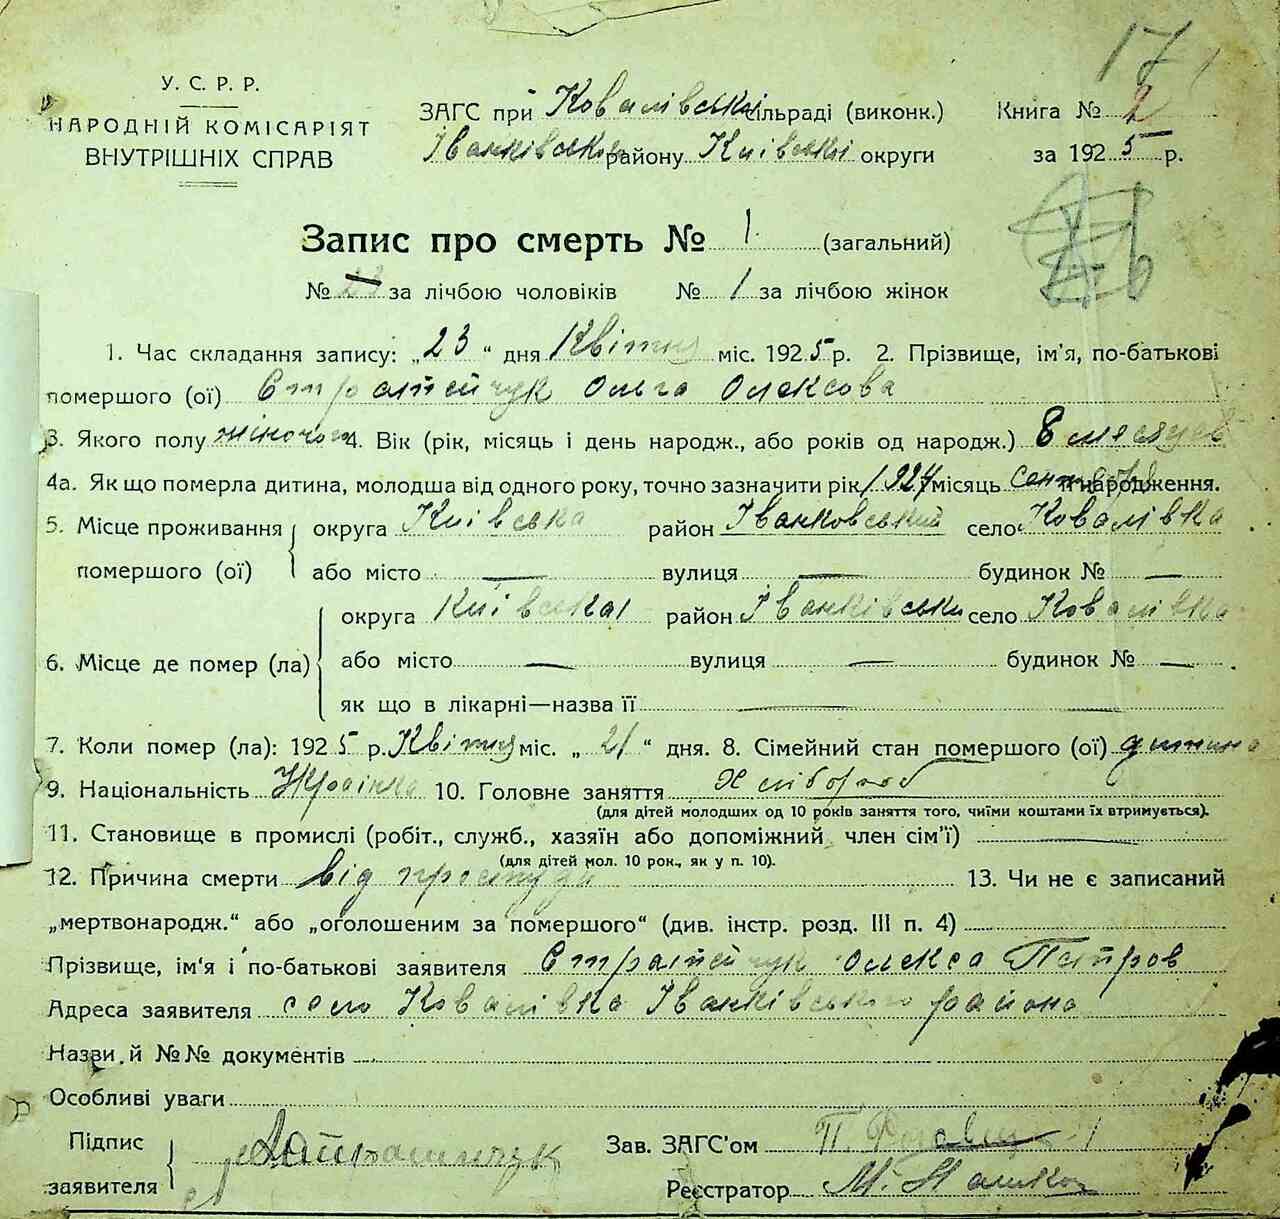 17
У. С. Р. Р.
НАРОДНІЙ КОМІСАРІЯТ
ВНУТРІШНІХ СПРАВ
ЗАГС при Ковалівські сільраді (виконк.)
Іванківського району Київські округи
Книга № 2
за 1925 р.
Запис про смерть № 1. (загальний)
№ 23 за лічбою чоловіків № 1 за лічбою жінок
1. Час складання запису: „23“ дня Квітня міс. 1925 р. 2. Прізвище, ім'я, по-батькові
помершого (ої) Ольга Олексова
3. Якого полу жіночого 4. Вік (рік, місяць і день народж., або років од народж.) 8 месяцев
4а. Як що померла дитина, молодша від одного року, точно зазначити рік 1924 місяць народження.
5. Місце проживання помершого (ої) округа Київська район Іванковський село Ковалівка
або місто — вулиця — будинок № —
6. Місце де помер (ла) округа Київська район Іванківськи село Ковалівка
або місто — вулиця — будинок № —
як що в лікарні—назва її —
7. Коли помер (ла): 1925 р. Квітня міс. „21“ дня. 8. Сімейний стан помершого (ої) дитина
9. Національність Українка 10. Головне заняття Хлібороб
(для дітей молодших од 10 років заняття того, чиїми коштами їх втримується).
11. Становище в промислі (робіт., служб., хазяїн або допоміжний член сім'ї) —
(для дітей мол. 10 рок., як у п. 10).
12. Причина смерти від простуди 13. Чи не є записаний
„мертвонародж.“ або „оголошеним за помершого“ (див. інстр. розд. III п. 4)
Прізвище, ім'я і по-батькові заявителя Олекса Петров
Адреса заявителя село Ковалівка Іванківського района
Назви й №№ документів
Особливі уваги
Підпис заявителя
Зав. ЗАГС'ом
Реєстратор